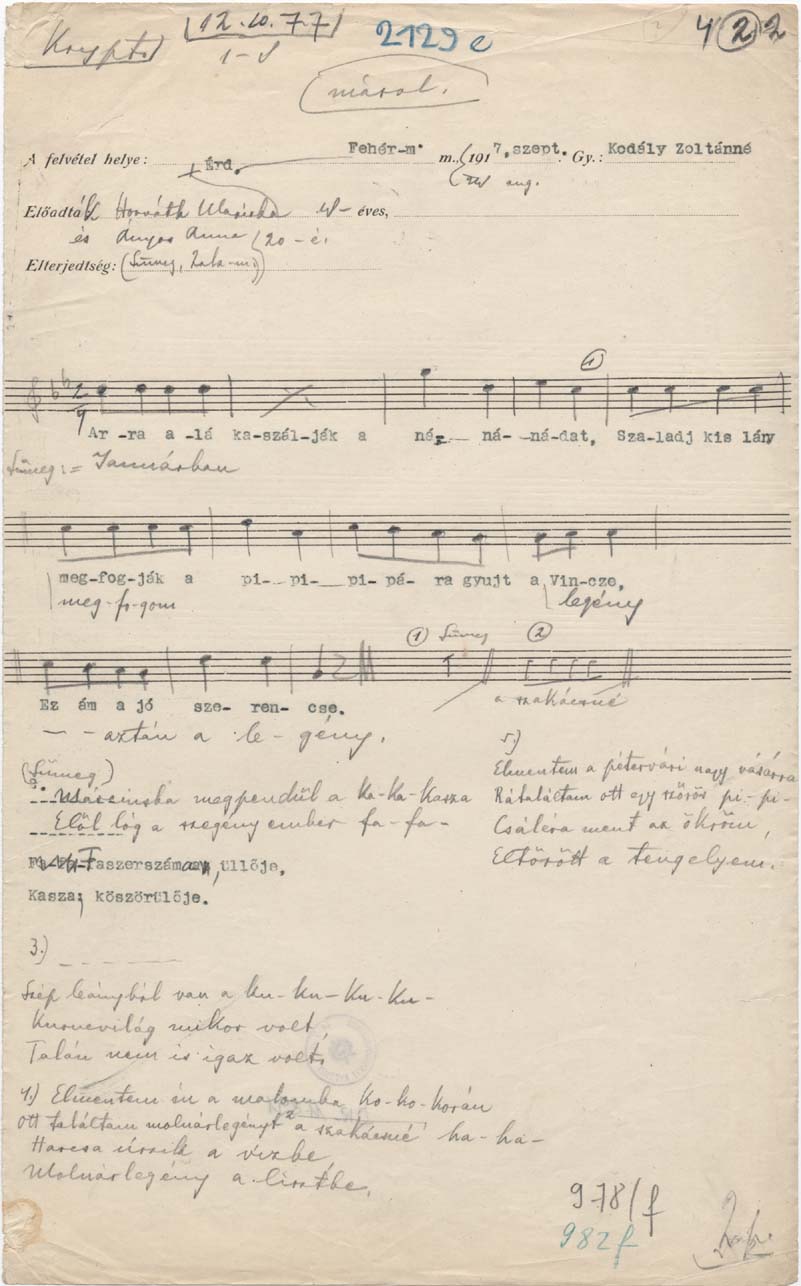 12.10.77
2129 e
4 2 2
másol.
A felvétel helye: Érd. Fehér-m. m., 1917, szept. Gy.: Kodály Zoltánné
aug.
Előadták Horváth Mariska éves,
és Ányos Anna 20-é.
Elterjedtség: (Sümeg, Zala-m.)
1
2/4
Ar -ra a -lá ka-szál-ják a ná- ná- -ná-dat, Sza-ladj kis lány
Sümeg: = Januárban
meg-fog-ják a pi- pi- pi- pá- ra gyujt a Vin-cze,
meg-fo-gom legény
1 Sümeg 2
Ez ám a jó sze- ren- cse.
a szakácsné
- - aztán a le- gény.
(Sümeg)
megpendül a ka-ka-kasza
Elől lóg a szegény ember fa-fa-
Faszerszám üllője,
Kasza köszörülője.
5.)
Elmentem a pétervári nagy vásárra
Rátaláltam ott egy szőrös pi-pi-
Csáléra ment az ökröm,
Eltörött a tengelyem.
3.)
Szép leányból van a ku-ku-ku-ku-
Kurucvilág mikor volt,
Talán nem is igaz volt.
4.) Elmentem én a malomba ko-ko-korán
ott találtam molnárlegényt a szakácsné ha-ha-
Harcsa úszik a vizbe
Molnárlegény a lisztbe.
978/f
982 f